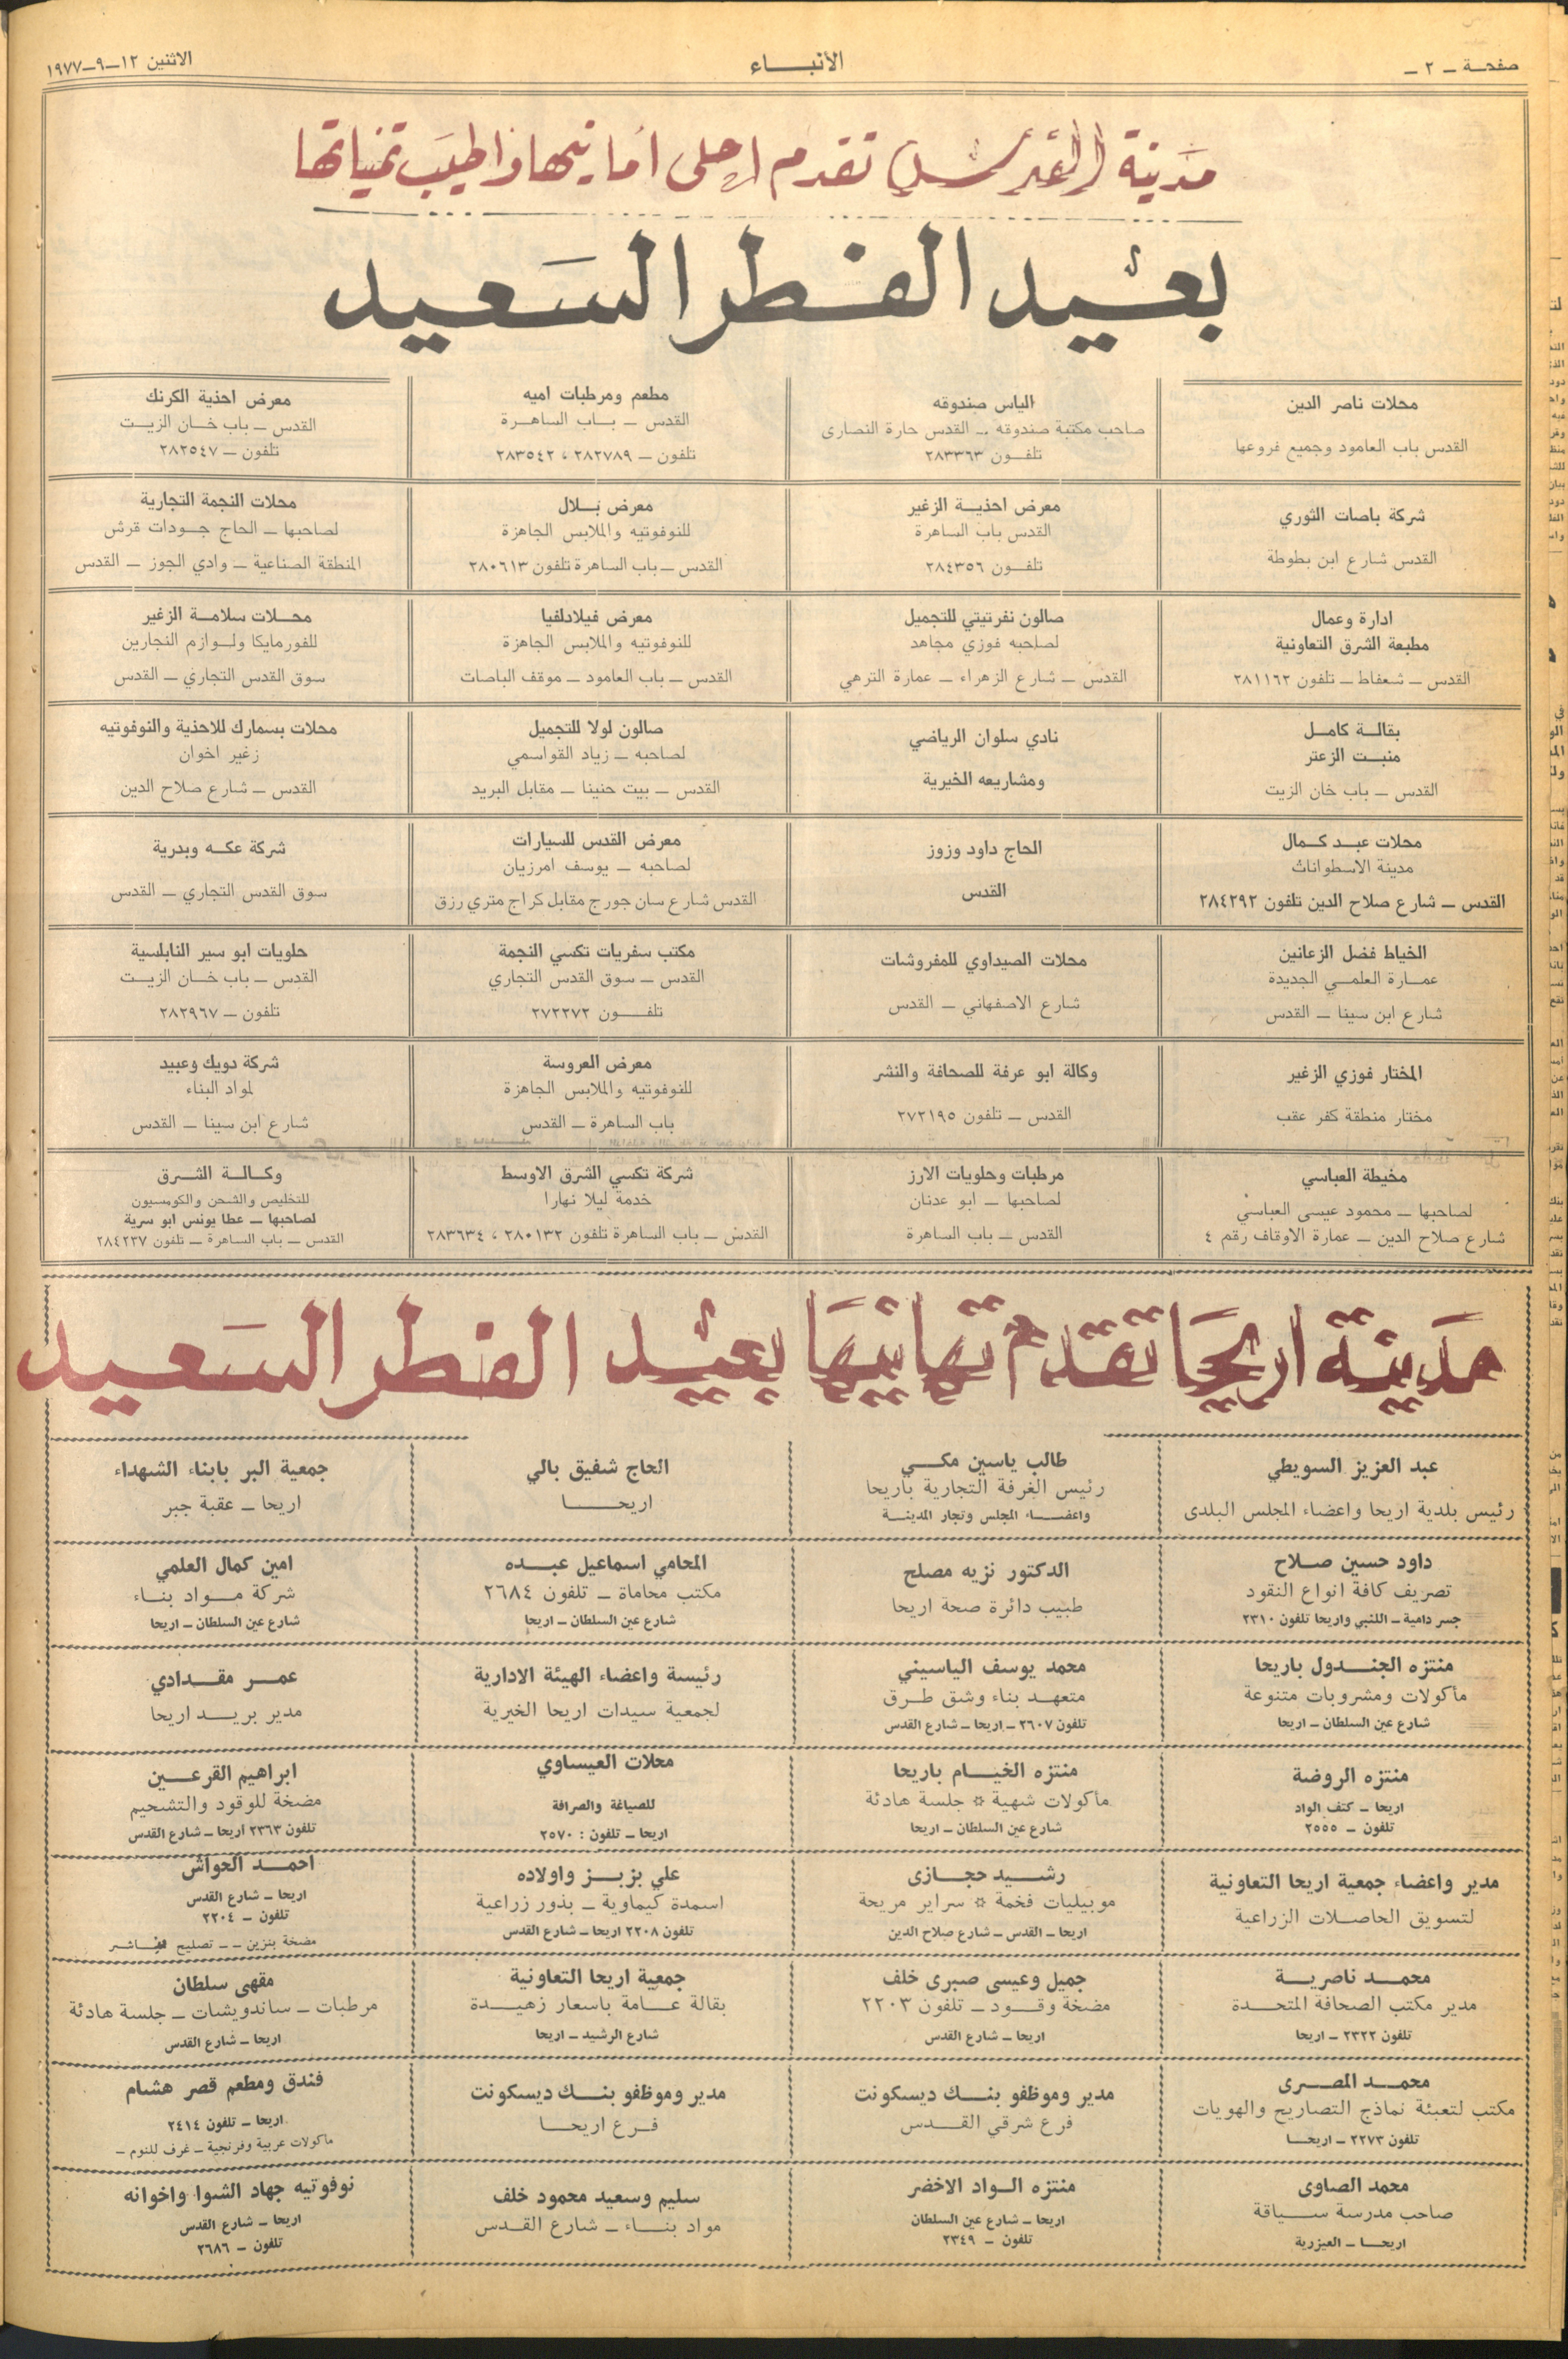 صفحة ــ ٢ ــ
الأنبــاء
الاثنين ١٢ــ٩ــ١٩٧٧
مدينة القدس تقدم احلى أمانيها واطيب تمنياتها
بعيد الفطر السعيد
محلات ناصر الدين
القدس باب العامود وجميع فروعها
الياس صندوقه
صاحب مكتبة صندوقه ــ القدس حارة النصارى
تلفــون ٢٨٣٣٦٣
مطعم ومرطبات اميه
القدس ــ بــاب الساهــرة
تلفون ــ ٢٨٢٧٨٩ ، ٢٨٣٥٤٢
معرض احذية الكرنك
القدس ــ باب خــان الزيــت
تلفون ــ ٢٨٢٥٤٧
شركة باصات الثوري
القدس شارع ابن بطوطة
معرض احذيــة الزغير
القدس باب الساهرة
تلفــون ٢٨٤٣٥٦
معرض بــلال
للنوفوتيه والملابس الجاهزة
القدس ــ باب الساهرة تلفون ٢٨٠٦١٣
محلات النجمة التجارية
لصاحبها ــ الحاج جــودات قرش
المنطقة الصناعية ــ وادي الجوز ــ القدس
ادارة وعمال
مطبعة الشرق التعاونية
القدس ــ شعفاط ــ تلفون ٢٨١١٦٢
صالون نفرتيتي للتجميل
لصاحبه فوزي مجاهد
القدس ــ شارع الزهراء ــ عمارة الترهي
معرض فيلادلفيا
للنوفوتيه والملابس الجاهزة
القدس ــ باب العامود ــ موقف الباصات
محــلات سلامــة الزغير
للفورمايكا ولــوازم النجارين
سوق القدس التجاري ــ القدس
بقالــة كامــل
منبــت الزعتر
القدس ــ باب خان الزيت
نادي سلوان الرياضي
ومشاريعه الخيرية
صالون لولا للتجميل
لصاحبه ــ زياد القواسمي
القدس ــ بيت حنينا ــ مقابل البريد
محلات بسمارك للاحذية والنوفوتيه
زغير اخوان
القدس ــ شارع صلاح الدين
محلات عبــد كــمال
مدينة الاسطوانات
القدس ــ شارع صلاح الدين تلفون ٢٨٤٢٩٢
الحاج داود وزوز
القدس
معرض القدس للسيارات
لصاحبه ــ يوسف امرزيان
القدس شارع سان جورج مقابل كراج متري رزق
شركة عكــه وبدرية
سوق القدس التجاري ــ القدس
الخياط فضل الزعانين
عمــارة العلمــي الجديدة
شارع ابن سينا ــ القدس
محلات الصيداوي للمفروشات
شارع الاصفهاني ــ القدس
مكتب سفريات تكسي النجمة
القدس ــ سوق القدس التجاري
تلفــــون ٢٧٢٢٧٢
حلويات ابو سير النابلسية
القدس ــ باب خــان الزيــت
تلفون ــ ٢٨٢٩٦٧
المختار فوزي الزغير
مختار منطقة كفر عقب
وكالة ابو عرفة للصحافة والنشر
القدس ــ تلفون ٢٧٢١٩٥
معرض العروسة
للنوفوتيه والملابس الجاهزة
باب الساهرة ــ القدس
شركة دويك وعبيد
لمواد البناء
شارع ابن سينا ــ القدس
مخيطة العباسي
لصاحبها ــ محمود عيسى العباسي
شارع صلاح الدين ــ عمارة الاوقاف رقم ٤
مرطبات وحلويات الارز
لصاحبها ــ ابو عدنان
القدس ــ باب الساهرة
شركة تكسي الشرق الاوسط
خدمة ليلا نهارا
القدس ــ باب الساهرة تلفون ٢٨٠١٣٢ ، ٢٨٣٦٣٤
وكــالــة الشــرق
للتخليص والشحن والكومسيون
لصاحبها ــ عطا يونس ابو سرية
القدس ــ باب الساهرة ــ تلفون ٢٨٤٢٣٧
مدينة اريحا تقدم تهانيها بعيد الفطر السعيد
عبد العزيز السويطي
رئيس بلدية اريحا واعضاء المجلس البلدى
طالب ياسين مكــي
رئيس الغرفة التجارية باريحا
واعضــــاء المجلس وتجار المدينــة
الحاج شفيق بالي
اريحـــــا
جمعية البر بابناء الشهداء
اريحا ــ عقبة جبر
داود حسين صــلاح
تصريف كافة انواع النقود
جسر دامية ــ اللنبي واريحا تلفون ٢٣١٠
الدكتور نزيه مصلح
طبيب دائرة صحة اريحا
المحامي اسماعيل عبــده
مكتب محاماة ــ تلفون ٢٦٨٤
شارع عين السلطان ــ اريحا
امين كمال العلمي
شركة مــواد بنــاء
شارع عين السلطان ــ اريحا
منتزه الجنــدول باريحا
مأكولات ومشروبات متنوعة
شارع عين السلطان ــ اريحا
محمد يوسف الياسيني
متعهــد بناء وشق طــرق
تلفون ٢٦٠٧ ــ اريحا ــ شارع القدس
رئيسة واعضاء الهيئة الادارية
لجمعية سيدات اريحا الخيرية
عمــر مقــدادي
مدير بريــد اريحا
منتزه الروضة
اريحا ــ كتف الواد
تلفون ــ ٢٥٥٥
منتزه الخيــام باريحا
مأكولات شهية ✡ جلسة هادئة
شارع عين السلطان ــ اريحا
محلات العيساوي
للصياغة والصرافة
اريحا ــ تلفون : ٢٥٧٠
ابراهيم القرعــين
مضخة للوقود والتشحيم
تلفون ٢٣٦٣ اريحا ــ شارع القدس
مدير واعضاء جمعية اريحا التعاونية
لتسويق الحاصــلات الزراعية
رشــيد حجــازى
موبيليات فخمة ✡ سراير مريحة
اريحا ــ القدس ــ شارع صلاح الدين
علي بزبــز واولاده
اسمدة كيماوية ــ بذور زراعية
تلفون ٢٢٠٨ اريحا ــ شارع القدس
احمــد الحواش
اريحا ــ شارع القدس
تلفون ــ ٢٢٠٤
مضخة بنزين ــ ــ تصليح
محمــد ناصريــة
مدير مكتب الصحافة المتحــدة
تلفون ٢٣٢٢ ــ اريحا
جميل وعيسى صبرى خلف
مضخة وقــود ــ تلفون ٢٢٠٣
اريحا ــ شارع القدس
جمعية اريحا التعاونية
بقالة عــامة باسعار زهيــدة
شارع الرشيد ــ اريحا
مقهى سلطان
مرطبات ــ ساندويشات ــ جلسة هادئة
اريحا ــ شارع القدس
محمــد المصــرى
مكتب لتعبئة نماذج التصاريح والهويات
تلفون ٢٢٧٣ ــ اريحــا
مدير وموظفو بنــك ديسكونت
فرع شرقي القــدس
مدير وموظفو بنــك ديسكونت
فــرع اريحــا
فندق ومطعم قصر هشام
اريحا ــ تلفون ٢٤١٤
ماكولات عربية وفرنجية ــ غرف للنوم ــ
محمد الصاوى
صاحب مدرسة ســياقة
اريحــا ــ العيزرية
منتزه الــواد الاخضر
اريحا ــ شارع عين السلطان
تلفون ــ ٢٣٤٩
سليم وسعيد محمود خلف
مواد بنــاء ــ شارع القــدس
نوفوتيه جهاد الشوا واخوانه
اريحا ــ شارع القدس
تلفون ــ ٢٦٨٦